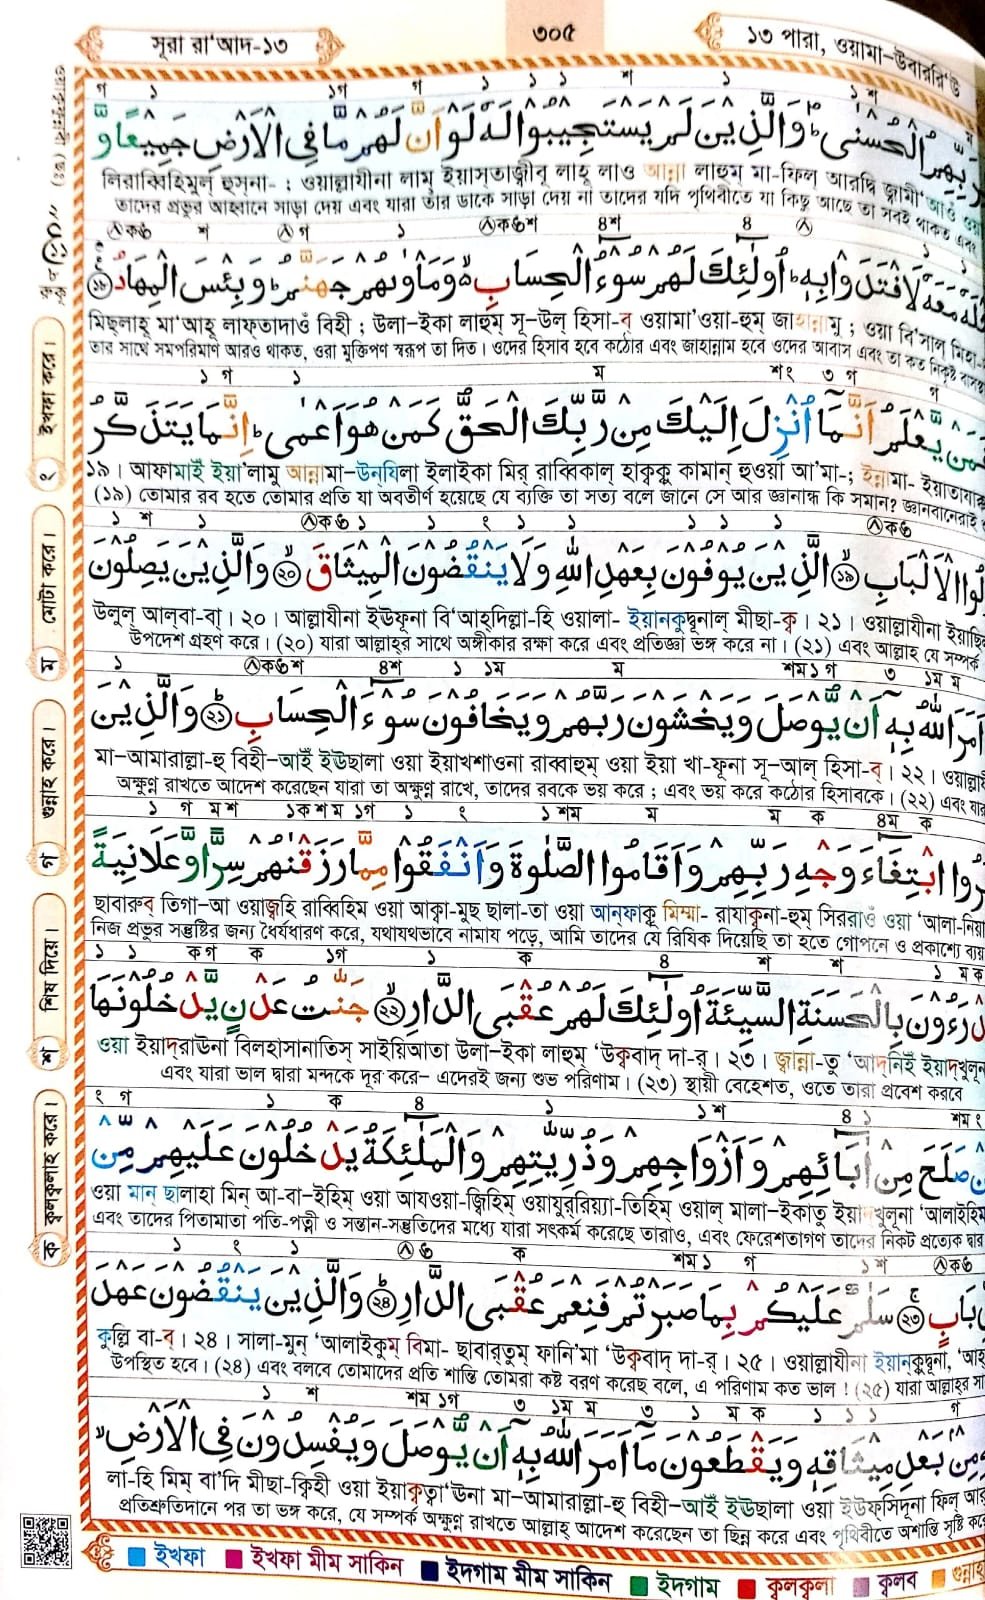 সূরা রা‘আদ-১৩
৩০৫
১৩ পারা, ওয়ামা-উবাররি‘উ
رَبِّهِمُ الْحُسْنٰى ؕ وَالَّذِيْنَ لَمْ يَسْتَجِيْبُوْا لَهٗ لَوْ اَنَّ لَهُمْ مَّا فِى الْاَرْضِ جَمِيْعًا وَّ
লিরাব্বিহিমুল্ হুসনা- ; ওয়াল্লাযীনা লাম্ ইয়াস্তাজ্বীবূ লাহূ লাও আন্না লাহুম্ মা-ফিল্ আরদ্বি জ্বামী‘আঁও ওয়া
তাদের প্রভুর আহ্বানে সাড়া দেয় এবং যারা তাঁর ডাকে সাড়া দেয় না তাদের যদি পৃথিবীতে যা কিছু আছে তা সবই থাকত এবং
مِثْلَهٗ مَعَهٗ لَافْتَدَوْا بِهٖ ؕ اُولٰٓئِكَ لَهُمْ سُوْٓءُ الْحِسَابِ ۙ وَمَاْوٰىهُمْ جَهَنَّمُ ؕ وَبِئْسَ الْمِهَادُ ۝١٨
মিছ্লাহূ মা‘আহূ লাফ্তাদাওঁ বিহী ; উলা-ইকা লাহুম্ সূ-উল্ হিসা-ব্ ওয়ামা’ওয়া-হুম্ জাহান্নামু ; ওয়া বি’সাল্ মিহা-
তার সাথে সমপরিমাণ আরও থাকত, ওরা মুক্তিপণ স্বরূপ তা দিত। ওদের হিসাব হবে কঠোর এবং জাহান্নাম হবে ওদের আবাস এবং তা কত নিকৃষ্ট
اَفَمَنْ يَّعْلَمُ اَنَّمَاۤ اُنْزِلَ اِلَيْكَ مِنْ رَّبِّكَ الْحَقُّ كَمَنْ هُوَ اَعْمٰى ؕ اِنَّمَا يَتَذَكَّرُ
১৯। আফামাইঁ ইয়া’লামু আন্নামা-উন্যিলা ইলাইকা মির্ রাব্বিকাল্ হাক্বক্বু কামান্ হুওয়া আ’মা-; ইন্নামা- ইয়াতাযাক্
(১৯) তোমার রব হতে তোমার প্রতি যা অবতীর্ণ হয়েছে যে ব্যক্তি তা সত্য বলে জানে সে আর জ্ঞানান্ধ কি সমান? জ্ঞানবানেরাই
اُولُوا الْاَلْبَابِ ۝١٩ الَّذِيْنَ يُوْفُوْنَ بِعَهْدِ اللّٰهِ وَلَا يَنْقُضُوْنَ الْمِيْثَاقَ ۝٢٠ وَالَّذِيْنَ يَصِلُوْنَ
উলুল্ আল্বা-ব্। ২০। আল্লাযীনা ইঊফূনা বি‘আহ্দিল্লা-হি ওয়ালা- ইয়ানকুদ্বূনাল্ মীছা-ক্ব। ২১। ওয়াল্লাযীনা ইয়াছি
উপদেশ গ্রহণ করে। (২০) যারা আল্লাহর সাথে অঙ্গীকার রক্ষা করে এবং প্রতিজ্ঞা ভঙ্গ করে না। (২১) এবং আল্লাহ যে সম্পর্ক
مَاۤ اَمَرَ اللّٰهُ بِهٖۤ اَنْ يُّوْصَلَ وَيَخْشَوْنَ رَبَّهُمْ وَيَخَافُوْنَ سُوْٓءَ الْحِسَابِ ۝٢١ وَالَّذِيْنَ
মা-আমারাল্লা-হু বিহী-আইঁ ইঊছালা ওয়া ইয়াখশাওনা রাব্বাহুম্ ওয়া ইয়া খা-ফূনা সূ-আল্ হিসা-ব্। ২২। ওয়াল্লাযী
অক্ষুণ্ন রাখতে আদেশ করেছেন যারা তা অক্ষুণ্ন রাখে, তাদের রবকে ভয় করে ; এবং ভয় করে কঠোর হিসাবকে। (২২) এবং যারা
صَبَرُوا ابْتِغَآءَ وَجْهِ رَبِّهِمْ وَاَقَامُوا الصَّلٰوةَ وَاَنْفَقُوْا مِمَّا رَزَقْنٰهُمْ سِرًّا وَّعَلَانِيَةً
ছাবারুব্ তিগা-আ ওয়াজ্বহি রাব্বিহিম ওয়া আক্বা-মুছ্ ছালা-তা ওয়া আন্ফাক্বূ মিম্মা- রাযাক্বনা-হুম্ সিররাওঁ ওয়া ‘আলা-নিয়া
নিজ প্রভুর সন্তুষ্টির জন্য ধৈর্যধারণ করে, যথাযথভাবে নামায পড়ে, আমি তাদের যে রিযিক দিয়েছি তা হতে গোপনে ও প্রকাশ্যে ব্যয়
يَدْرَءُوْنَ بِالْحَسَنَةِ السَّيِّئَةَ اُولٰٓئِكَ لَهُمْ عُقْبَى الدَّارِ ۝٢٢ جَنّٰتُ عَدْنٍ يَّدْخُلُوْنَهَا
ওয়া ইয়াদ্রাঊনা বিলহাসানাতিস্ সাইয়িআতা উলা-ইকা লাহুম্ ‘উক্ববাদ্ দা-র্। ২৩। জ্বান্না-তু ‘আদ্নিইঁ ইয়াদ্খুলূন
এবং যারা ভাল দ্বারা মন্দকে দূর করে- এদেরই জন্য শুভ পরিণাম। (২৩) স্থায়ী বেহেশত, ওতে তারা প্রবেশ করবে
مَنْ صَلَحَ مِنْ اٰبَآئِهِمْ وَاَزْوَاجِهِمْ وَذُرِّيّٰتِهِمْ وَالْمَلٰٓئِكَةُ يَدْخُلُوْنَ عَلَيْهِمْ مِّنْ
ওয়া মান্ ছালাহা মিন্ আ-বা-ইহিম্ ওয়া আযওয়া-জ্বিহিম্ ওয়াযুর্রিয়্যা-তিহিম্ ওয়াল্ মালা-ইকাতু ইয়াদ্খুলূনা ‘আলাইহিম
এবং তাদের পিতামাতা পতি-পত্নী ও সন্তান-সন্ততিদের মধ্যে যারা সৎকর্ম করেছে তারাও, এবং ফেরেশতাগণ তাদের নিকট প্রত্যেক দ্বার
بَابٍ ۝٢٣ سَلٰمٌ عَلَيْكُمْ بِمَا صَبَرْتُمْ فَنِعْمَ عُقْبَى الدَّارِ ۝٢٤ وَالَّذِيْنَ يَنْقُضُوْنَ عَهْدَ
কুল্লি বা-ব্। ২৪। সালা-মুন্ ‘আলাইকুম্ বিমা- ছাবার্তুম্ ফানি’মা ‘উক্ববাদ্ দা-র্। ২৫। ওয়াল্লাযীনা ইয়ান্কুদ্বূনা, ‘আহ্
উপস্থিত হবে। (২৪) এবং বলবে তোমাদের প্রতি শান্তি তোমরা কষ্ট বরণ করেছ বলে, এ পরিণাম কত ভাল ! (২৫) যারা আল্লাহর সা
مِنْۢ بَعْدِ مِيْثَاقِهٖ وَيَقْطَعُوْنَ مَاۤ اَمَرَ اللّٰهُ بِهٖۤ اَنْ يُّوْصَلَ وَيُفْسِدُوْنَ فِى الْاَرْضِ ۙ
লা-হি মিম্ বা’দি মীছা-ক্বিহী ওয়া ইয়াক্বত্বা‘ঊনা মা-আমারাল্লা-হু বিহী-আইঁ ইঊছালা ওয়া ইউফ্সিদূনা ফিল্ আর
প্রতিশ্রুতিদানে পর তা ভঙ্গ করে, যে সম্পর্ক অক্ষুণ্ন রাখতে আল্লাহ্ আদেশ করেছেন তা ছিন্ন করে এবং পৃথিবীতে অশান্তি সৃষ্টি করে
১ ইখফা করে।
ম মোটা করে।
গ গুন্নাহ করে।
শ শিষ দিয়ে।
ক ক্বলক্বলাহ করে।
ইখফা
ইখফা মীম সাকিন
ইদগাম মীম সাকিন
ইদগাম
ক্বলক্বলা
ক্বলব
গুন্নাহ